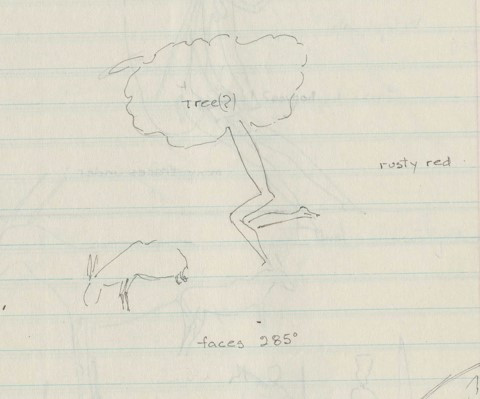 Tree(?)
rusty red
faces 285°